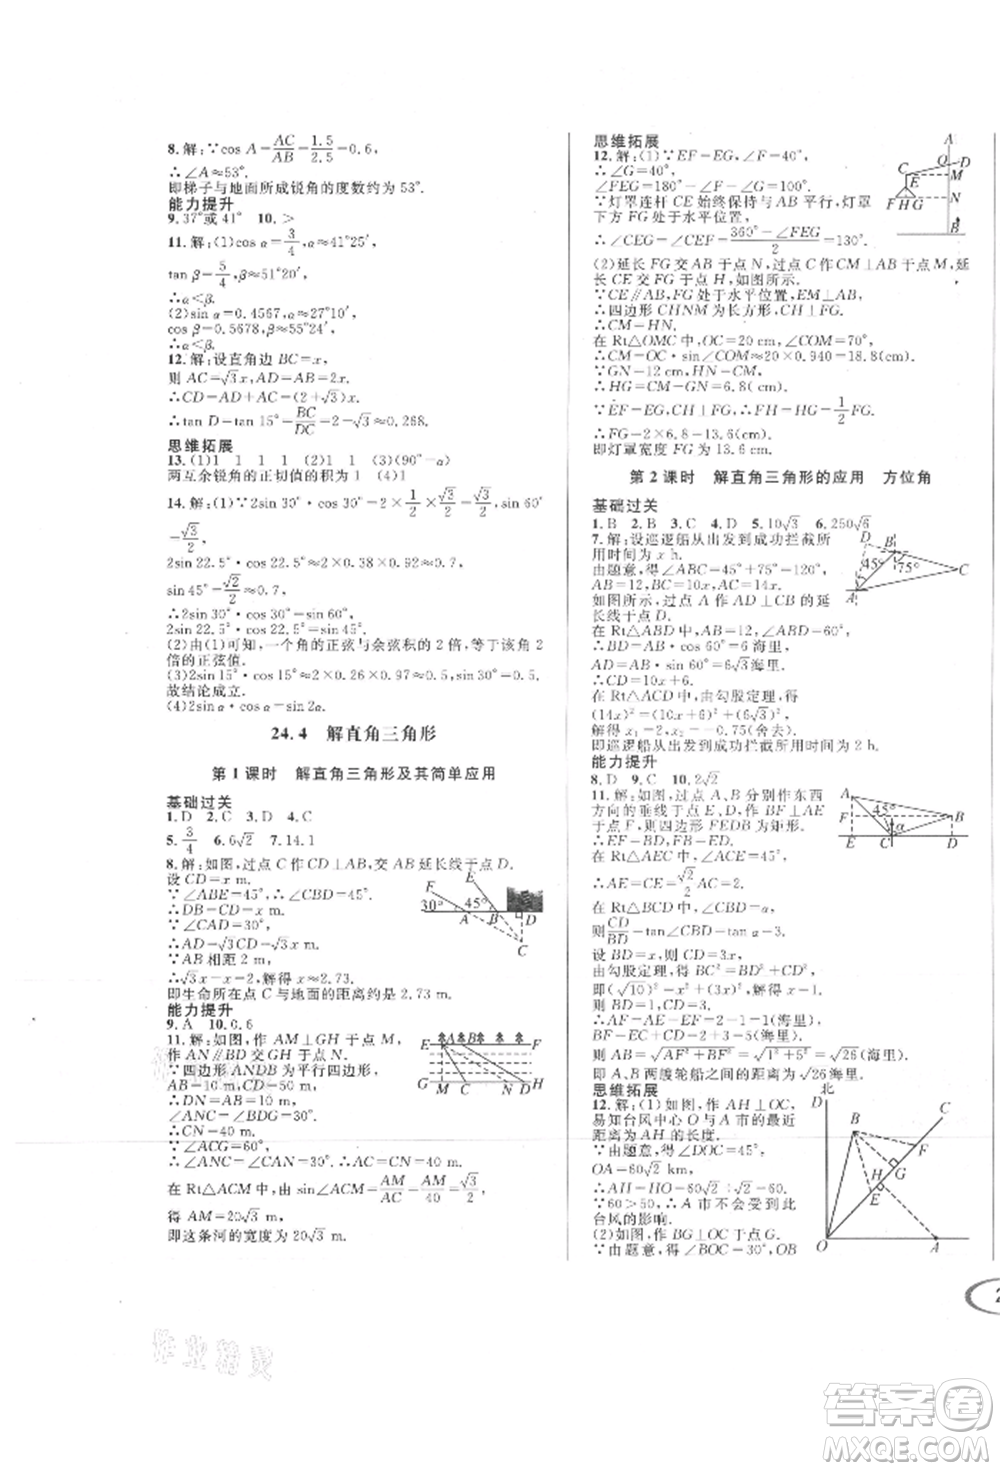 8.解:∵cos A=AC/AB=1.5/2.5=0.6,
∴∠A≈53°.
即梯子与地面所成锐角的度数约为 53°.
能力提升
9.37°或 41° 10.>
11.解:(1)cos α=3/4,∴α≈41°25′.
tan β=5/4,∴β≈51°20′,
∴α<β.
(2)sin α=0.4567,∴α≈27°10′.
cos β=0.5678,∴β≈55°24′,
∴α<β.
12.解:设直角边 BC=x,
则 AC=√3x,AB=2x.
∴CD=AD+AC=(2+√3)x.
∴tan D=tan 15°=BC/DC≈0.268.
思维拓展
13.(1)1 1 1 1 (2)1 (3)(90°-α)
两互余锐角的正切值的积为 1 (4)1
14.解:(1)∵2sin 30°·cos 30°=2×1/2×√3/2=√3/2,sin 60°
=√3/2.
2sin 22.5°·cos 22.5°≈2×0.38×0.92≈0.7,
sin 45°=√2/2≈0.7,
∴2sin 30°·cos 30°=sin 60°,
2sin 22.5°·cos 22.5°=sin 45°.
(2)由(1)可知,一个角的正弦与余弦积的 2 倍,等于该角 2
倍的正弦值.
(3)2sin 15°·cos 15°≈2×0.26×0.97≈0.5,sin 30°=0.5,
故结论成立.
(4)2sin α·cos α=sin2α.
24.4 解直角三角形
第 1 课时 解直角三角形及其简单应用
基础过关
1.D 2.C 3.D 4.C
5.3/4 6.6√2 7.14.1
8.解:如图,过点 C 作 CD⊥AB,交 AB 延长线于点 D.
设 CD=x m.
∵∠ABE=45°,∴∠CBD=45°,
∴DB=CD=x m.
∵∠CAD=30°,
∴AD=√3CD=√3x m.
∵AB 相距 2 m,
∴√3x-x=2,解得 x≈2.73.
即生命所在点 C 与地面的距离约是 2.73 m.
F E 30° 45° A B D C
能力提升
9.A 10.0.6
11.解:如图,作 AM⊥GH 于点 M,
作 AN∥BD 交 GH 于点 N.
∴四边形 ANDB 为平行四边形,
∴DN=AB=20 m,
∠ANC=∠BDG=30°.
∴CN=40 m.
∵∠ACG=60°,
∴∠ANC=∠CAN=30°,∴AC=CN=40 m.
在 Rt△ACM 中,由 sin∠ACM=AM/AC=AM/40=√3/2,
得 AM=20√3 m.
即这条河的宽度为 20√3 m.
E A B F G M C N D H
思维拓展
12.解:(1)∵EF=EG,∠F=40°,
∴∠G=40°.
∠FEG=180°-40°-40°=100°.
∵灯罩连杆 CE 始终保持与 AB 平行,灯罩
下方 FG 处于水平位置,
∴∠CEG=(360°-∠FEG)/2=130°.
(2)延长 FG 交 AB 于点 N,过点 C 作 CM⊥AB 于点 M,
延长 CE 交 FG 于点 H,如图所示.
∵CE∥AB,FG 处于水平位置,∴CH⊥FG.
∴四边形 CHNM 为长方形,
∴CM=HN.
在 Rt△OMC 中,OC=20 cm,∠COM=70°,
∴CM=OC·sin∠COM≈20×0.940=18.8(cm).
∵GN=12 cm,
∴HG=CM-GN=6.8(cm).
∵EF=EG,CH⊥FG,∴FH=HG=1/2FG.
∴FG=2×6.8=13.6(cm).
即灯罩宽度 FG 为 13.6 cm.
A O D C E M F H G N B
第 2 课时 解直角三角形的应用 方位角
基础过关
1.B 2.B 3.C 4.D 5.10√3 6.250√6
7.解:设巡逻船从出发到成功拦截所
用时间为 x h.
由题意,得∠ABC=45°+75°=120°,
AB=12,BC=10x,AC=14x.
如图所示,过点 A 作 AD⊥CB 的延
长线于点 D.
在 Rt△ABD 中,AB=12,∠ABD=60°,
∴BD=AB·cos 60°=6 海里,
AD=AB·sin 60°=6√3海里.
∴CD=10x+6.
在 Rt△ACD 中,由勾股定理,得
(14x)²=(10x+6)²+(6√3)²,
解得 x₁=2,x₂=-0.75(舍去).
即巡逻船从出发到成功拦截所用时间为 2 h.
D B 45° 75° C A
能力提升
8.D 9.C 10.2√2
11.解:如图,过点 A、B 分别作东西
方向的垂线于点 E、D,作 BF⊥AE
于点 F,则四边形 FEDB 为矩形.
∴EF=BD,FB=ED.
在 Rt△AEC 中,∠ACE=45°,
∴AE=EC=√2/2×5√2=5.
在 Rt△BCD 中,∠CBD=α,
则CD/BD=tan∠CBD=tan α=3.
设 BD=x,则 CD=3x,
由勾股定理,得 BC²=BD²+CD²,
即(√10)²=x²+(3x)²,解得 x=1.
则 BD=1,CD=3.
∴AF=AE-EF=5-1=4(海里),
BF=EC+CD=5+3=8(海里),
则 AB=√AF²+BF²=
即 A、B 两艘轮船之间的距离为
A 45° F B α E C D
思维拓展
12.解:(1)如图,作 AH⊥OC,
易知台风中心 O 与 A 市的最近
距离为 AH 的长度.
∵由题意,得∠DOC=45°,
OA=60√2 km,
∴AH=HO=60√2÷√2=60(km).
∵60>50,∴A 市不会受到此
台风的影响.
(2)如图,作 BG⊥OC 于点 G.
∵由题意,得∠BOC=30°,OB
北 D C B F G H E O A
作业精灵
答案圈
MXQE.COM
2